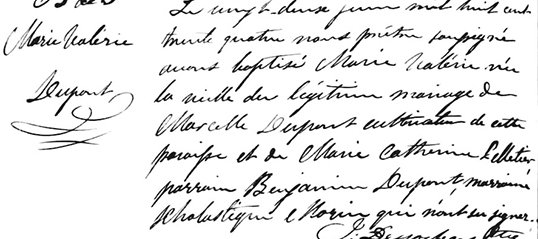 Marie Valérie
Dupont
Le vingt-deux juin mil huit cent
trente quatre nous prêtre soussigné
avons baptisé Marie Valérie née
la veille du légitime mariage de
Marcelle Dupont cultivateur de cette
paroisse et de Marie Catherine
parrain Benjamin Dupont, marraine
Scholastique Morin qui n'ont su signer.